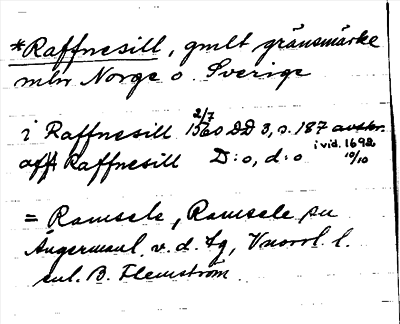 *Raffnesill, gmlt gränsmärke
mlm Norge o. Sverige
2/7
i Raffnesill 1560 DD 3, s. 187 avskr.
i vid. 1692
aff Raffnesill D:o, d:o 10/10
= Ramsele, Ramsele sn
Ångermanl. v. d. Lg, Vnorrl. l.
enl. B. Flemström.